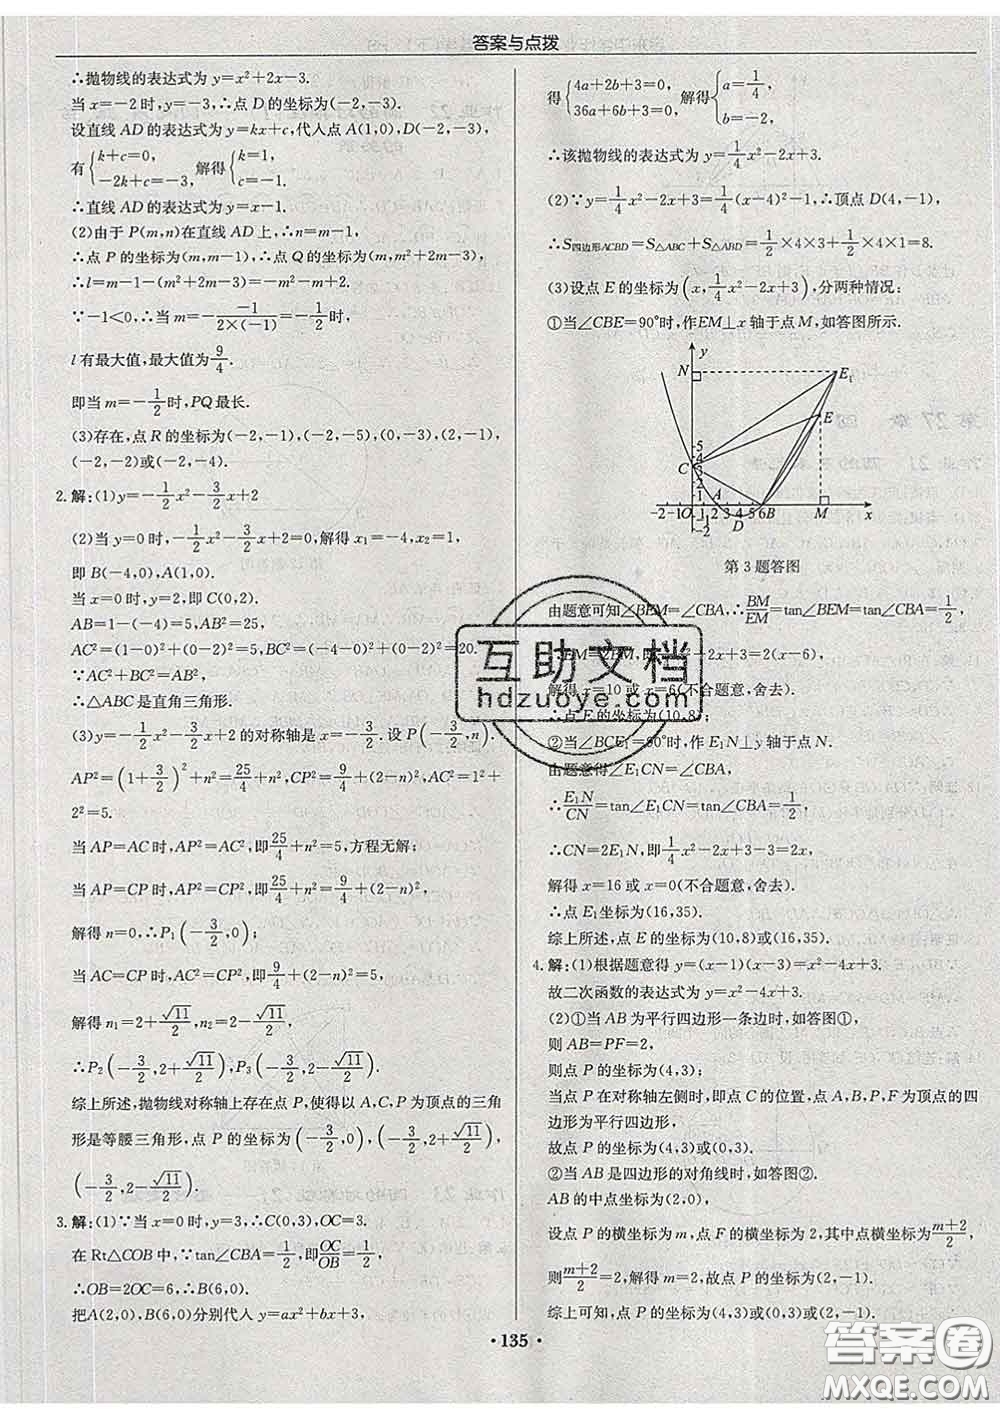 答案与点拨
∴抛物线的表达式为 y=x²+2x-3.
当 x=-2 时,y=-3,∴点 D 的坐标为(-2,-3).
设直线 AD 的表达式为 y=kx+c,代人点 A(1,0),D(-2,-3),
有{k+c=0, -2k+c=-3, 解得{k=1, c=-1.
∴直线 AD 的表达式为 y=x-1.
(2)由于 P(m,n)在直线 AD 上,∴n=m-1,
∴点 P 的坐标为(m,m-1),∴点 Q 的坐标为(m,m²+2m-3).
∴l=m-1-(m²+2m-3)=-m²-m+2.
∵-1<0,∴当 m=-\frac{-1}{2×(-1)}=-\frac{1}{2}时,
l 有最大值,最大值为\frac{9}{4}.
即当 m=-\frac{1}{2}时,PQ 最长.
(3)存在,点 R 的坐标为(-2,-1),(-5,0),(0,-3),(2,-1),
(-2,-2)或(-2,-4).
2. 解:(1)y=-\frac{1}{2}x²-\frac{3}{2}x+2
(2)当 y=0 时,-\frac{1}{2}x²-\frac{3}{2}x+2=0,解得 x₁=-4,x₂=1,
即 B(-4,0),A(1,0).
当 x=0 时,y=2,即 C(0,2).
AB=1-(-4)=5,AB²=25,
AC²=(1-0)²+(0-2)²=5,BC²=(-4-0)²+(0-2)²=20.
∵AC²+BC²=AB²,
∴△ABC 是直角三角形.
(3)y=-\frac{1}{2}x²-\frac{3}{2}x+2 的对称轴是 x=-\frac{3}{2}. 设 P(-\frac{3}{2},n).
AP²=(1+\frac{3}{2})²+n²=\frac{25}{4}+n²,CP²=\frac{9}{4}+(2-n)²,AC²=1²+
2²=5.
当 AP=AC 时,AP²=AC²,即\frac{25}{4}+n²=5,方程无解;
当 AP=CP 时,AP²=CP²,即\frac{25}{4}+n²=\frac{9}{4}+(2-n)²,
解得 n=0,∴P₁(-\frac{3}{2},0);
当 AC=CP 时,AC²=CP²,即\frac{9}{4}+(2-n)²=5,
解得 n₁=2+\frac{√11}{2},n₂=2-\frac{√11}{2},
∴P₂(-\frac{3}{2},2+\frac{√11}{2}),P₃(-\frac{3}{2},2-\frac{√11}{2}).
综上所述,抛物线对称轴上存在点 P,使得以 A,C,P 为顶点的三角
形是等腰三角形,点 P 的坐标为(-\frac{3}{2},0),(-\frac{3}{2},2+\frac{√11}{2}),
(-\frac{3}{2},2-\frac{√11}{2}).
3. 解:(1)∵当 x=0 时,y=3,∴C(0,3),OC=3.
在 Rt△COB 中,∵tan∠CBA=\frac{1}{2},即\frac{OC}{OB}=\frac{1}{2},
∴OB=2OC=6,∴B(6,0).
把A(2,0),B(6,0)分别代人 y=ax²+bx+3,
得{4a+2b+3=0, 36a+6b+3=0, 解得{a=\frac{1}{4}, b=-2.
∴该抛物线的表达式为 y=\frac{1}{4}x²-2x+3.
(2)∵y=\frac{1}{4}x²-2x+3=\frac{1}{4}(x-4)²-1,∴顶点 D(4,-1),
∴S四边形ACBD=S△ABC+S△ABD=\frac{1}{2}×4×3+\frac{1}{2}×4×1=8.
(3)设点 E 的坐标为(x,\frac{1}{4}x²-2x+3),分两种情况:
①当∠CBE=90°时,作EM⊥x 轴于点 M,如答图所示.
y
N
E₁
E
5
4
C 3
2
1
A
-2 -1 O 1 2 3 4 5 6B M x
-2 D
第 3 题答图
由题意可知∠BEM=∠CBA,∴\frac{BM}{EM}=tan∠BEM=tan∠CBA=\frac{1}{2},
∴EM=2BM,即\frac{1}{4}x²-2x+3=2(x-6),
解得 x=10 或 x=6(不合题意,舍去).
∴点 E 的坐标为(10,8);
②当∠BCE₁=90°时,作 E₁N⊥y 轴于点 N.
由题意得∠E₁CN=∠CBA,
∴\frac{E₁N}{CN}=tan∠E₁CN=tan∠CBA=\frac{1}{2},
∴CN=2E₁N,即\frac{1}{4}x²-2x+3-3=2x,
解得 x=16 或 x=0(不合题意,舍去).
∴点 E₁坐标为(16,35).
综上所述,点 E 的坐标为(10,8)或(16,35).
4. 解:(1)根据题意得 y=(x-1)(x-3)=x²-4x+3.
故二次函数的表达式为 y=x²-4x+3.
(2)①当 AB 为平行四边形一条边时,如答图①,
则 AB=PF=2,
则点 P 的坐标为(4,3);
当点 P 在对称轴左侧时,即点 C 的位置,点 A,B,P,F 为顶点的四
边形为平行四边形,
故点 P 的坐标为(4,3)或(0,3).
②当 AB 是四边形的对角线时,如答图②.
AB 的中点坐标为(2,0),
设点 P 的横坐标为 m,点 F 的横坐标为 2,其中点横坐标为\frac{m+2}{2},
则\frac{m+2}{2}=2,解得 m=2,故点 P 的坐标为(2,-1).
综上可知,点 P 的坐标为(4,3)或(0,3)或(2,-1).
·135·
互助文档
hdzuoye.com
答案圈
MXQE.COM